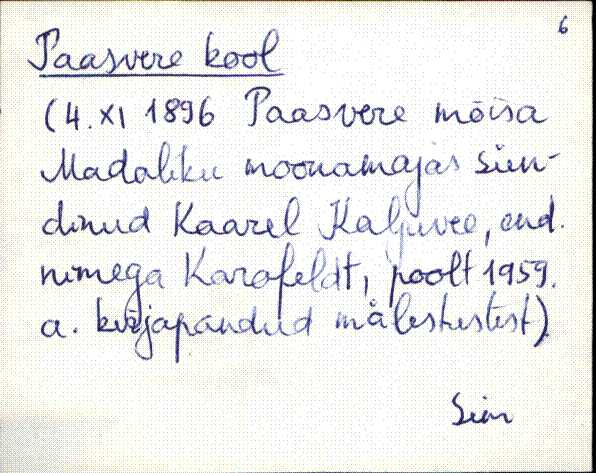 6
Paasvere kool
(4. XI 1896 Paasvere mõisa
Madaliku moonamajas sün-
dinud Kaarel Kaljuvee, end.
nimega Karofeldt, poolt 1959.
a. kirjapandud mälestustest)